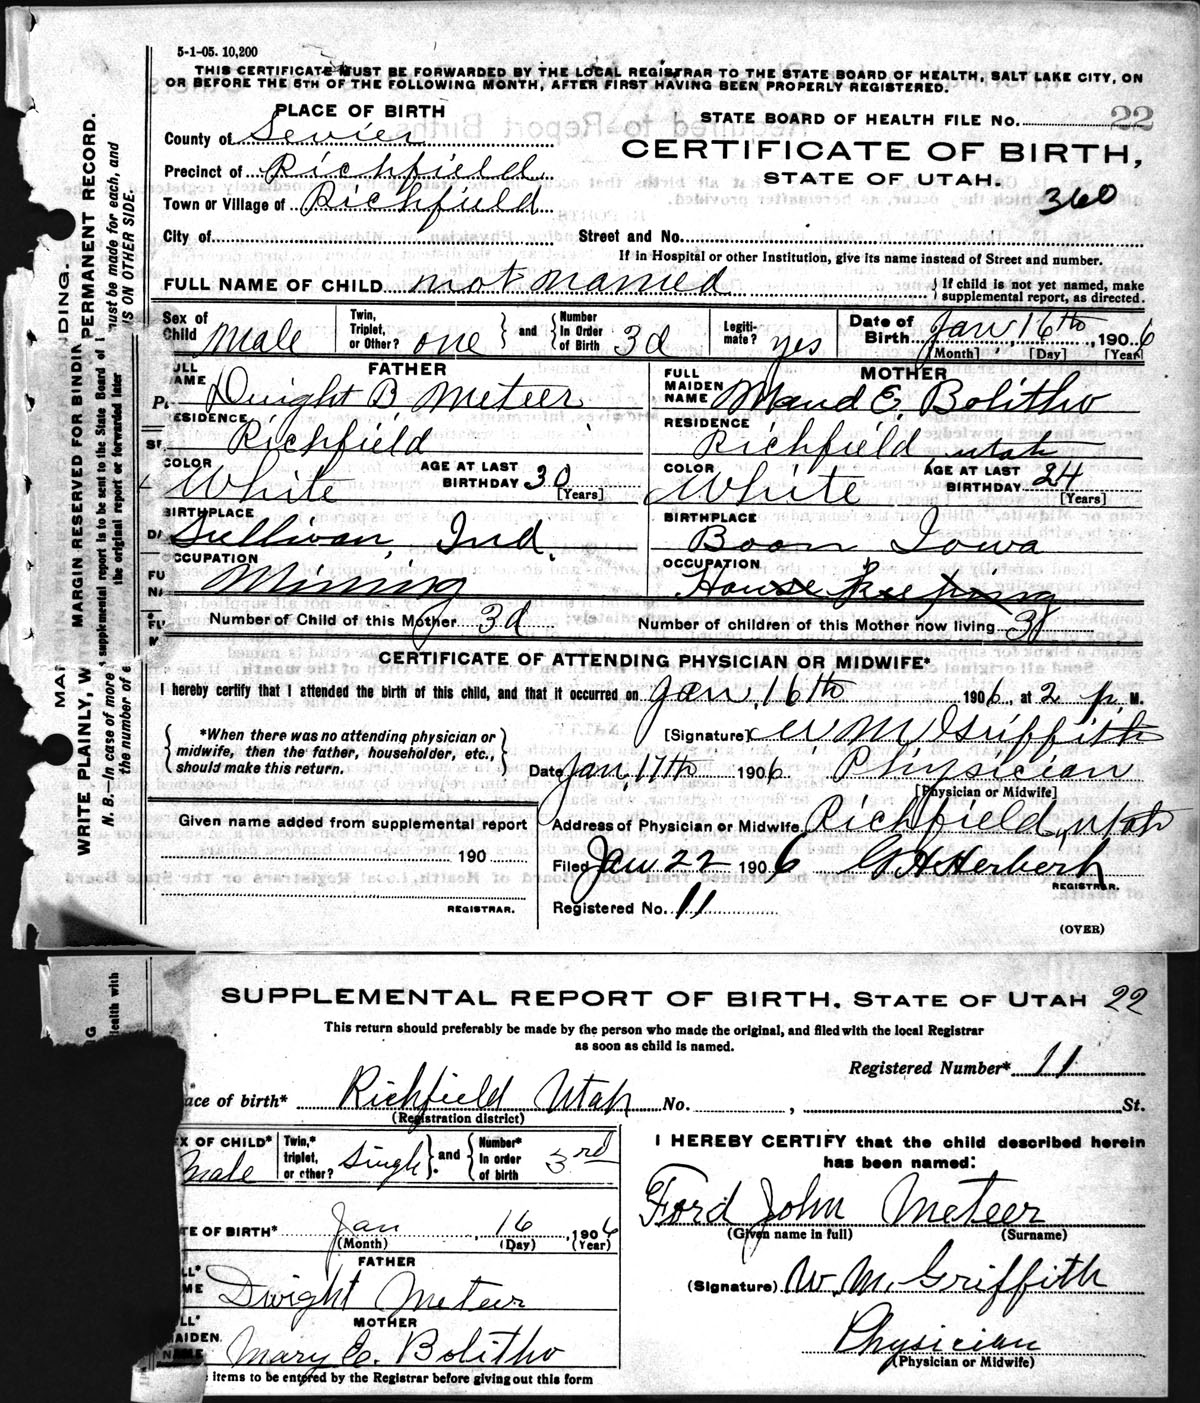 5-1-05. 10,200
THIS CERTIFICATE MUST BE FORWARDED BY THE LOCAL REGISTRAR TO THE STATE BOARD OF HEALTH, SALT LAKE CITY, ON
OR BEFORE THE 5TH OF THE FOLLOWING MONTH, AFTER FIRST HAVING BEEN PROPERLY REGISTERED.
PLACE OF BIRTH
STATE BOARD OF HEALTH FILE NO. 22
County of Sevier
CERTIFICATE OF BIRTH,
Precinct of Richfield
STATE OF UTAH.
Town or Village of Richfield
360
City of Street and No.
If in Hospital or other Institution, give its name instead of Street and number.
FULL NAME OF CHILD not named { If child is not yet named, make supplemental report, as directed.
Sex of Child Male Twin, Triplet, or Other? one } and { Number In Order of Birth 3d Legitimate? yes Date of Birth Jan, 16th, 1906
[Month] [Day] [Year]
FATHER MOTHER
FULL NAME Dwight B Meteer FULL MAIDEN NAME Maud E. Bolitho
RESIDENCE Richfield RESIDENCE Richfield, utah
COLOR White AGE AT LAST BIRTHDAY 30 [Years] COLOR White AGE AT LAST BIRTHDAY 24 [Years]
BIRTHPLACE Sullivan, Ind. BIRTHPLACE Boon Iowa
OCCUPATION Mining OCCUPATION House Keeping
Number of Child of this Mother 3d Number of children of this Mother now living 3d
CERTIFICATE OF ATTENDING PHYSICIAN OR MIDWIFE*
I hereby certify that I attended the birth of this child, and that it occurred on Jan, 16th 1906, at 2 p. M.
*When there was no attending physician or
midwife, then the father, householder, etc.,
should make this return.
[Signature] W M Griffith
Date Jan, 17th 1906 Physician
[Physician or Midwife]
Given name added from supplemental report
190
REGISTRAR.
Address of Physician or Midwife Richfield, Utah
Filed Jan 22 1906 G A Herbert
REGISTRAR.
Registered No. 11
(OVER)
MARGIN RESERVED FOR BINDING.
WRITE PLAINLY, W PERMANENT RECORD.
N. B.—In case of more must be made for each, and
the number of IS ON OTHER SIDE.
supplemental report is to be sent to the State Board of
the original report or forwarded later
SUPPLEMENTAL REPORT OF BIRTH, STATE OF UTAH 22
This return should preferably be made by the person who made the original, and filed with the local Registrar
as soon as child is named.
Registered Number* 11
ace of birth* Richfield Utah No. , St.
(Registration district)
EX OF CHILD* Male Twin,* triplet, or other? Singl } and { Number* in order of birth 3rd
TE OF BIRTH* Jan, 16, 1906
(Month) (Day) (Year)
FATHER
Dwight Meteer
MOTHER
MAIDEN NAME Mary E. Bolitho
items to be entered by the Registrar before giving out this form
I HEREBY CERTIFY that the child described herein
has been named:
Ford John Meteer
(Given name in full) (Surname)
(Signature) W. M. Griffith
Physician
(Physician or Midwife)